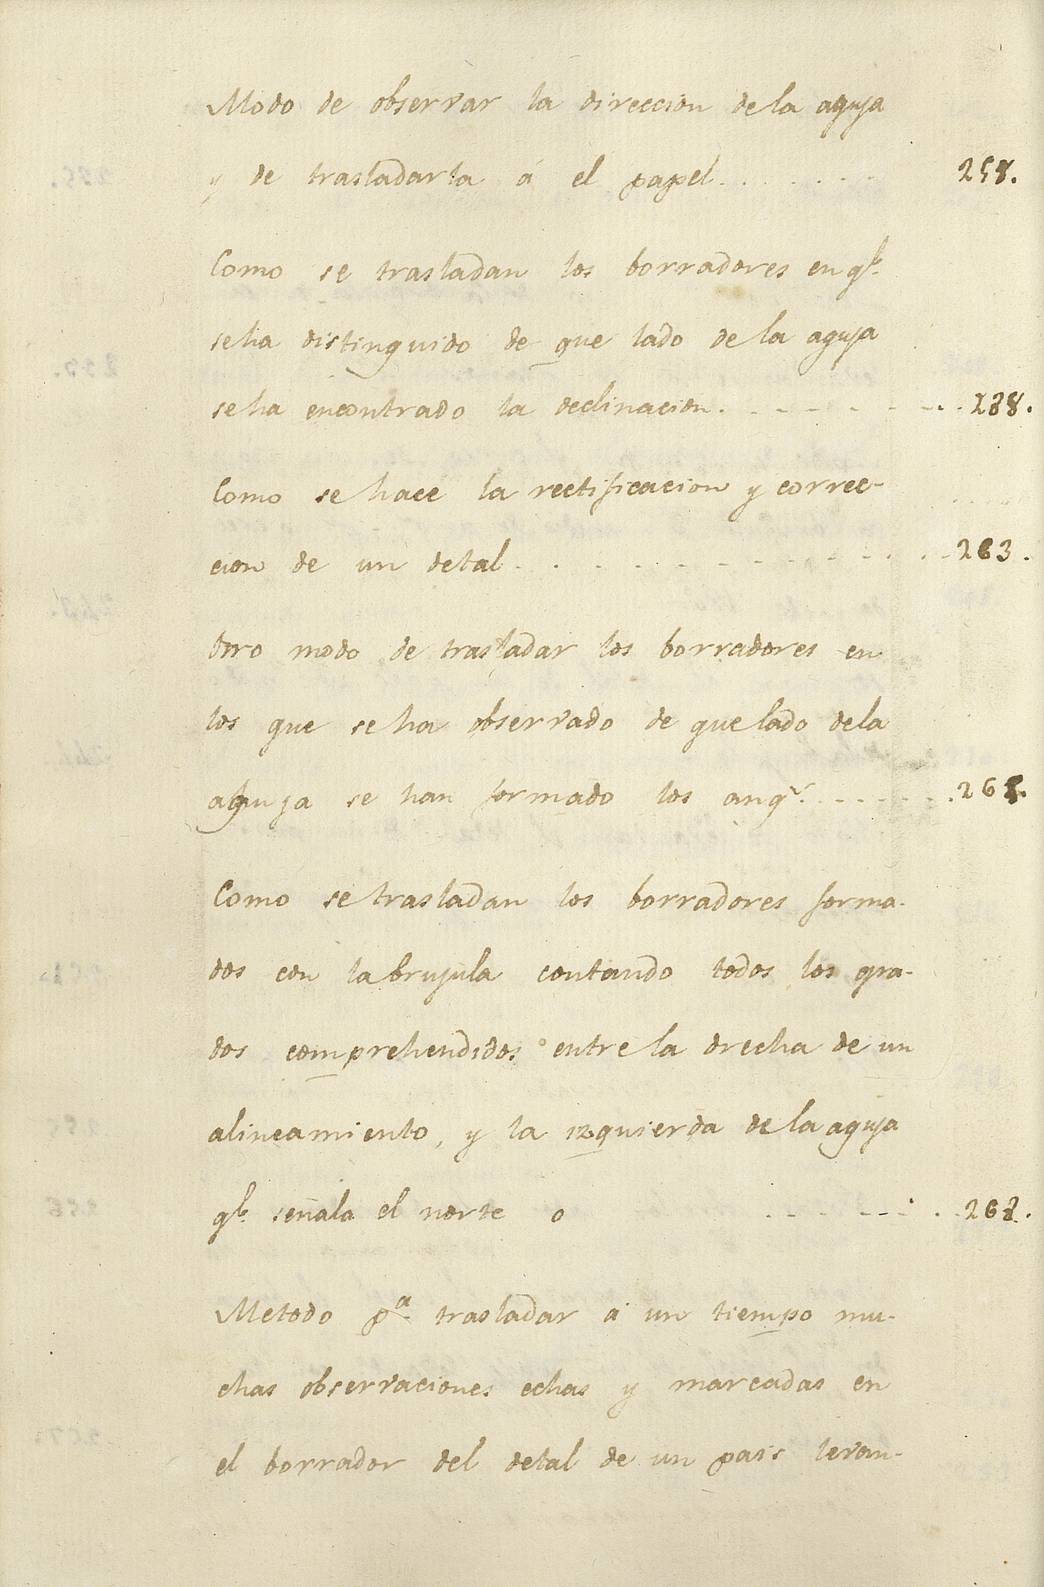 Modo de observar la direccion de la aguja
y de trasladarla á el papel. . . . . . . 258.
Como se trasladan los borradores en q.e
seha distinguido de que lado de la aguja
seha encontrado la declinacion. . . . . . . . 288.
Como se hace la rectificacion y correc-
cion de un detal. . . . . . . . . . . . 263.
Otro modo de trasladar los borradores en
los que se ha observado de que lado dela
aguja se han formado los ang.s . . . . . . 265.
Como se trasladan los borradores forma-
dos con la brujula contando todos los gra-
dos comprehendidos entre la drecha de un
alineamiento, y la izquierda de la aguja
q.e señala el norte o . . . . . . . 268.
Metodo p.a trasladar á un tiempo mu-
chas observaciones echas y marcadas en
el borrador del detal de un pais levan-